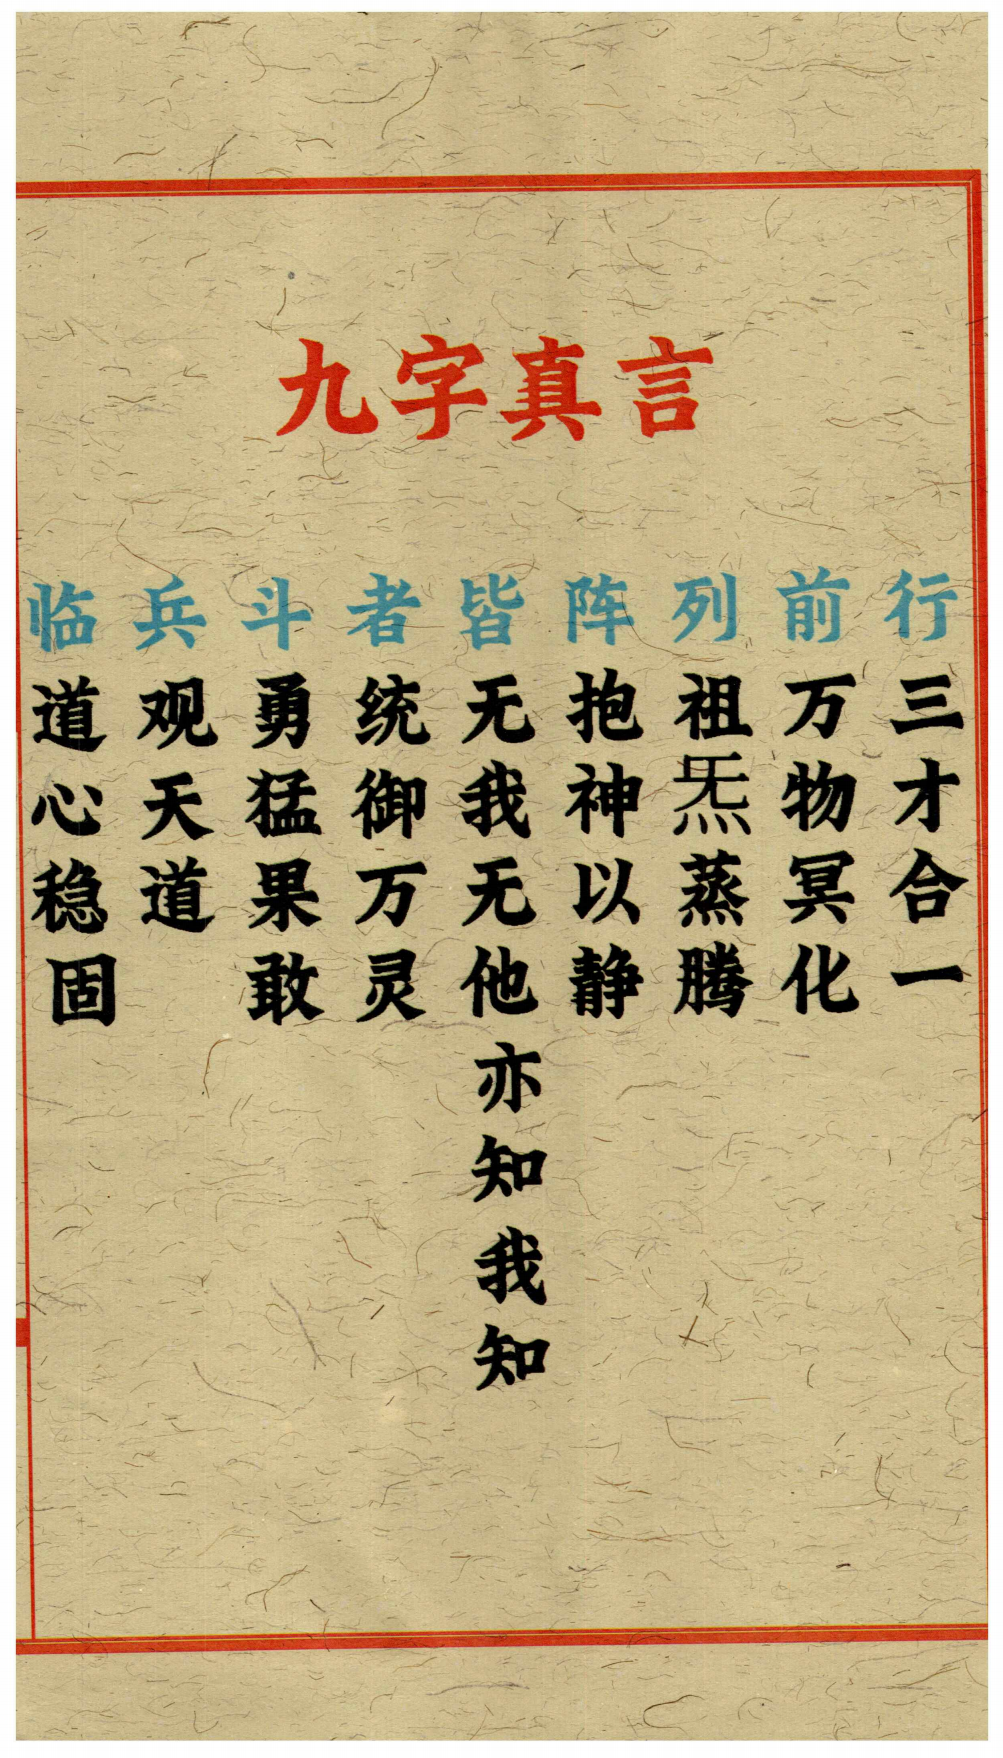 九字真言
临道心稳固
兵观天道
斗勇猛果敢
者统御万灵
皆无我无他亦知我知
阵抱神以静
列祖炁蒸腾
前万物冥化
行三才合一